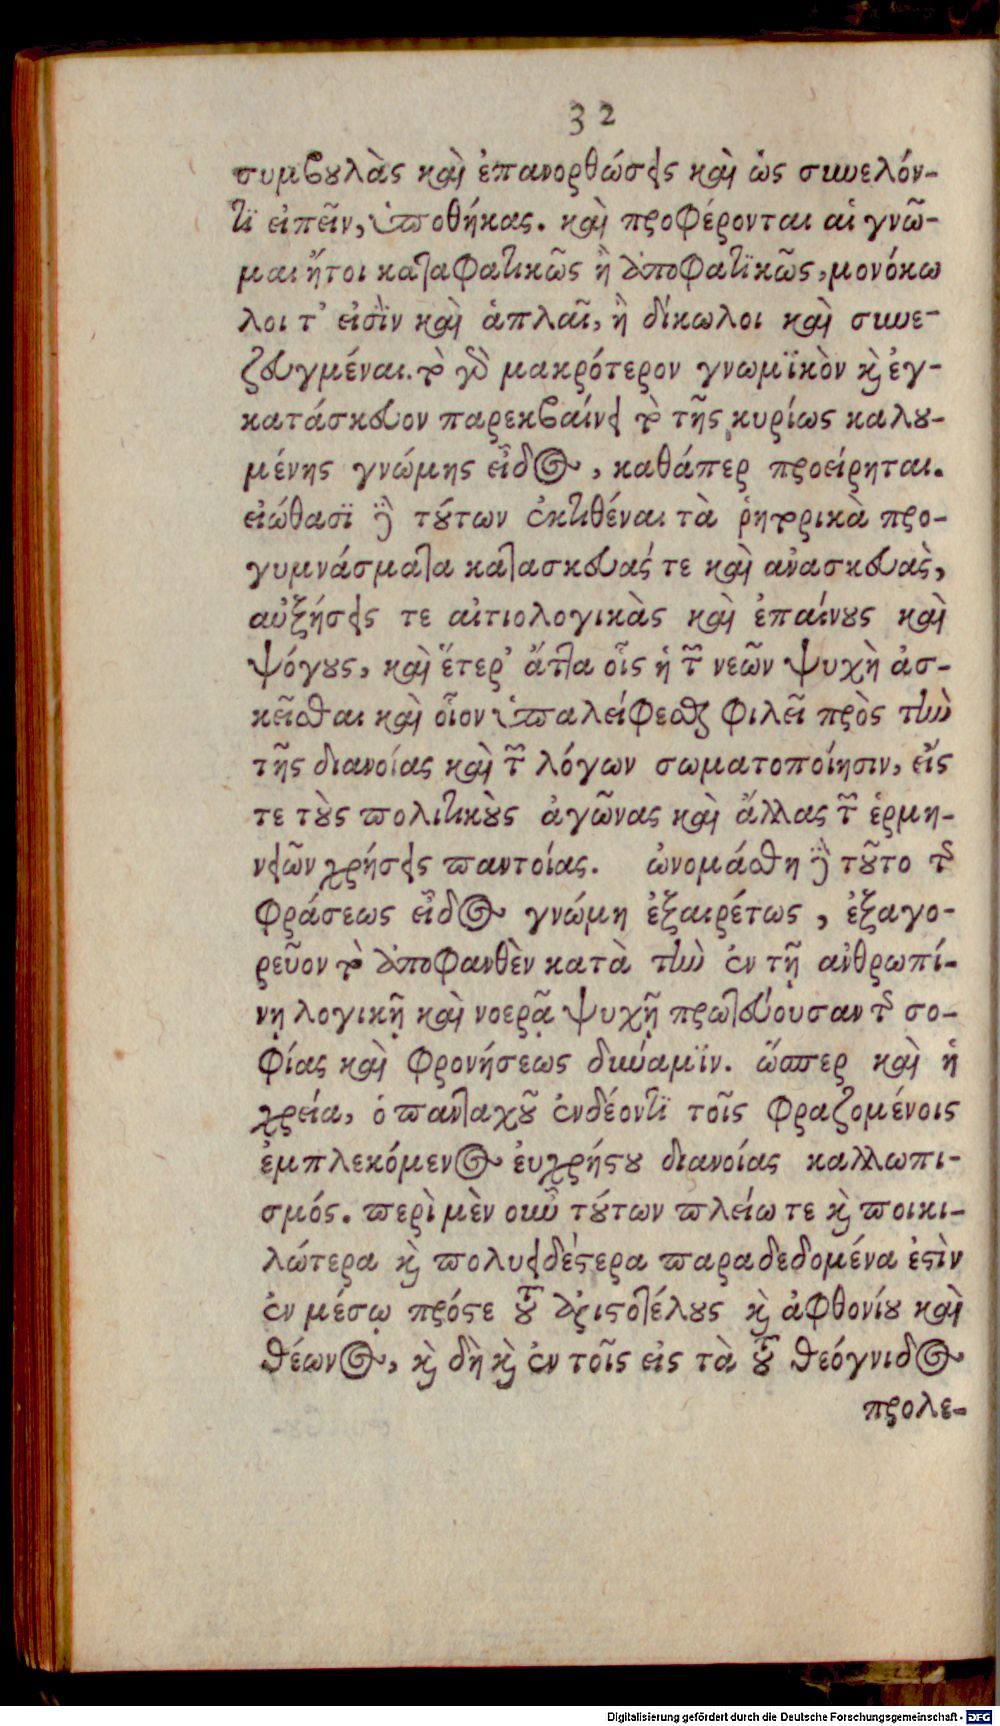 32
συμβουλὰς καὶ ἐπανορθώσεις καὶ ὡς συνελόν-
τι εἰπεῖν, ὑποθήκας. καὶ προφέρονται αἱ γνῶ-
μαι ἤτοι καταφατικῶς ἢ ἀποφατικῶς, μονόκω
λοι τ' εἰσὶν καὶ ἁπλαῖ, ἢ δίκωλοι καὶ συνε-
ζευγμέναι. τὸ γὰρ μακρότερον γνωμικὸν καὶ ἐγ-
κατάσκευον παρεκβαίνει τὸ τῆς κυρίως καλου-
μένης γνώμης εἶδος, καθάπερ προείρηται.
εἰώθασι δὲ τούτων ἐκτιθέναι τὰ ῥητορικὰ προ-
γυμνάσματα κατασκευάς τε καὶ ἀνασκευὰς,
αὐξήσεις τε αἰτιολογικὰς καὶ ἐπαίνους καὶ
ψόγους, καὶ ἕτερ' ἄττα οἷς ἡ τῶν νεῶν ψυχὴ ἀσ-
κεῖσθαι καὶ οἷον ὑπαλείφεσθαι φιλεῖ πρὸς τὴν
τῆς διανοίας καὶ τῶν λόγων σωματοποίησιν, εἴς
τε τοὺς πολιτικοὺς ἀγῶνας καὶ ἄλλας τῶν ἑρμη-
νειῶν χρήσεις παντοίας. ὠνομάσθη δὲ τοῦτο τῆς
φράσεως εἶδος γνώμη ἐξαιρέτως, ἐξαγο-
ρεῦον τὸ ἀποφανθὲν κατὰ τὴν ἐν τῇ ἀνθρωπί-
νῃ λογικῇ καὶ νοερᾷ ψυχῇ πρωτεύουσαν τῆς σο-
φίας καὶ φρονήσεως δύναμιν. ὥσπερ καὶ ἡ
χρεία, ὁ πανταχοῦ ἐνδέοντι τοῖς φραζομένοις
ἐμπλεκόμενος εὐχρήστου διανοίας καλλωπι-
σμός. περὶ μὲν οὖν τούτων πλείω τε καὶ ποικι-
λώτερα καὶ πολυειδέστερα παραδεδομένα ἐστὶν
ἐν μέσῳ πρός τε τοῦ ἀριστοτέλους καὶ ἀφθονίου καὶ
θέωνος, καὶ δὴ καὶ ἐν τοῖς εἰς τὰ τοῦ θεόγνιδος
προλε-
Digitalisierung gefördert durch die Deutsche Forschungsgemeinschaft - DFG